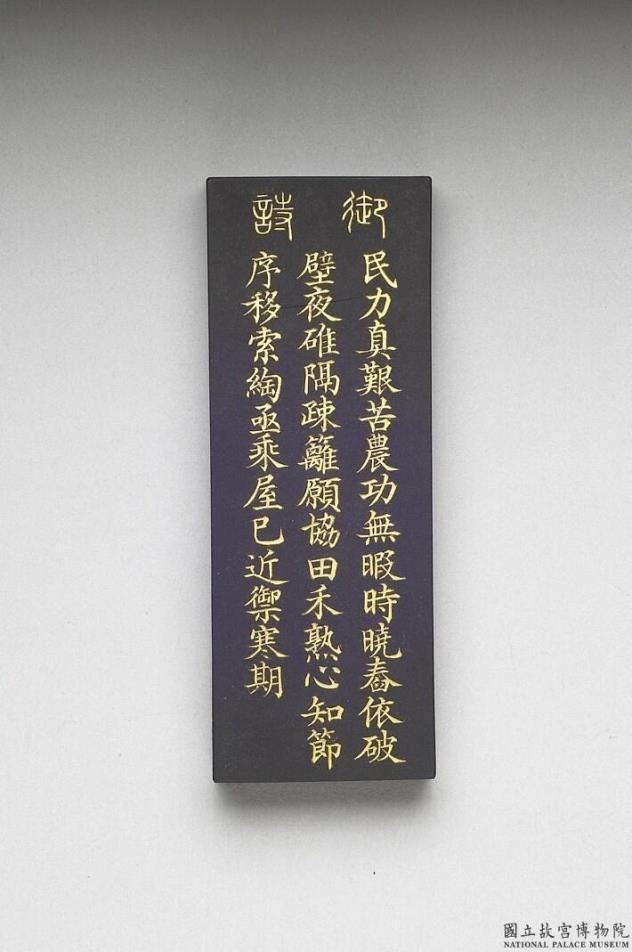 御詩
民力真艱苦農功無暇時曉舂依破
壁夜碓隔疎籬願協田禾熟心知節
序移索綯亟乘屋巳近禦寒期
國立故宮博物院
NATIONAL PALACE MUSEUM